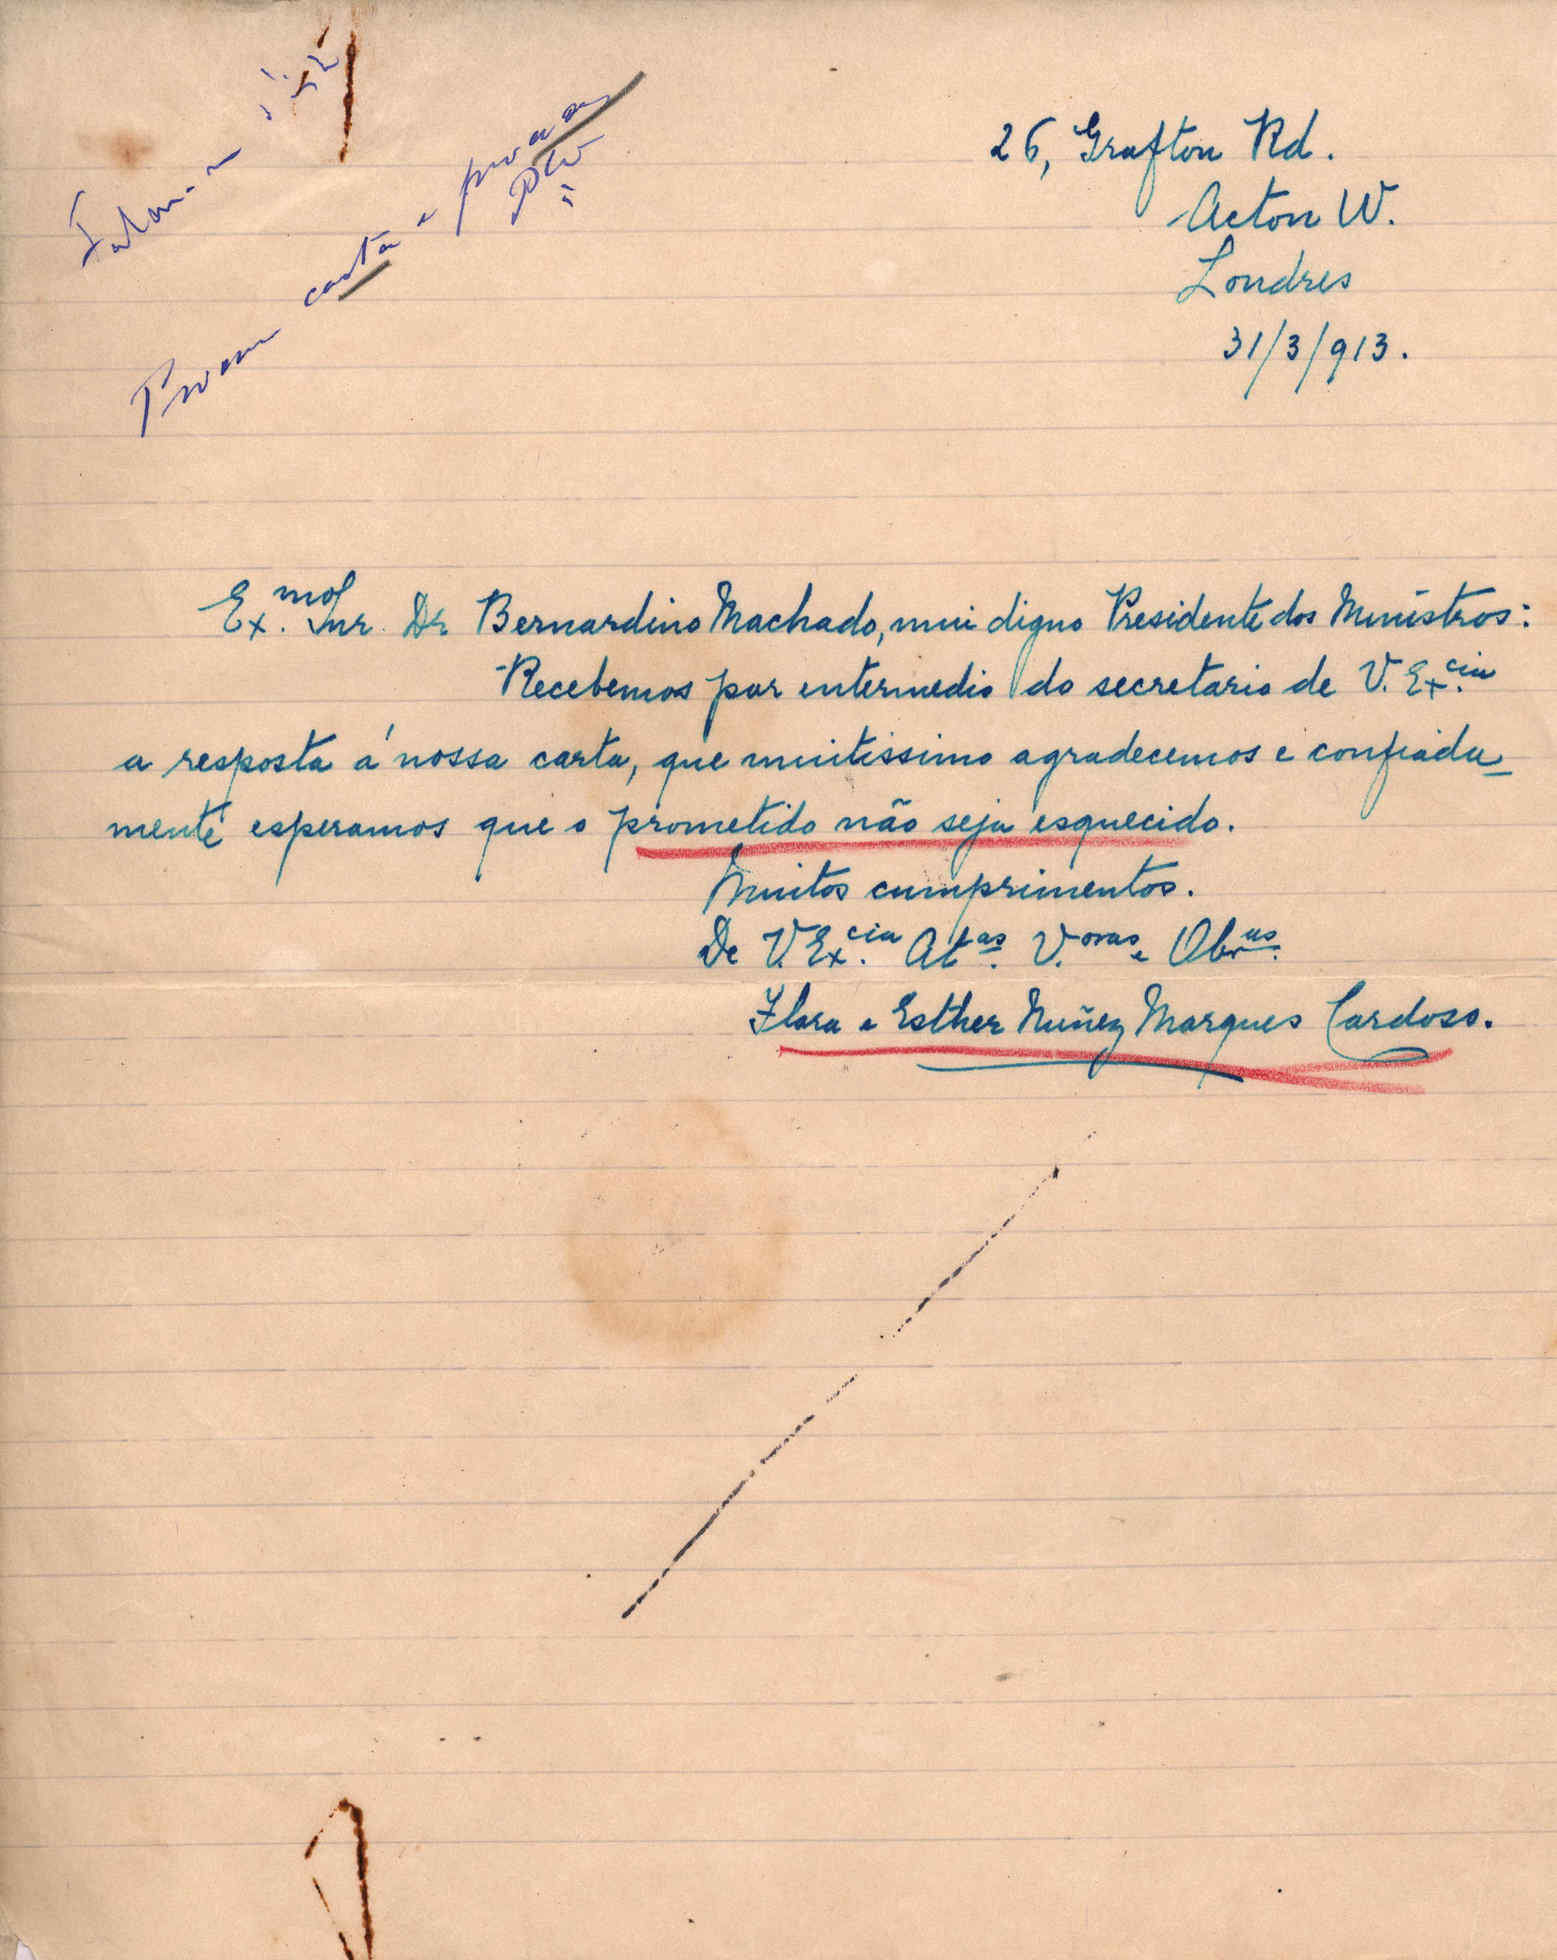 carta e
26, Grafton Rd.
Acton W.
Londres
31/3/913.
Ex.mo Snr. Dr Bernardino Machado, mui digno Presidente dos Ministros:
Recebemos por intermedio do secretario de V. Ex.cia
a resposta á nossa carta, que muitissimo agradecemos e confiada-
mente esperamos que o prometido não seja esquecido.
Muitos cumprimentos.
De V. Ex.cia At.as V.oras e Obr.as
Flora e Esther Nuñez Marques Cardoso.